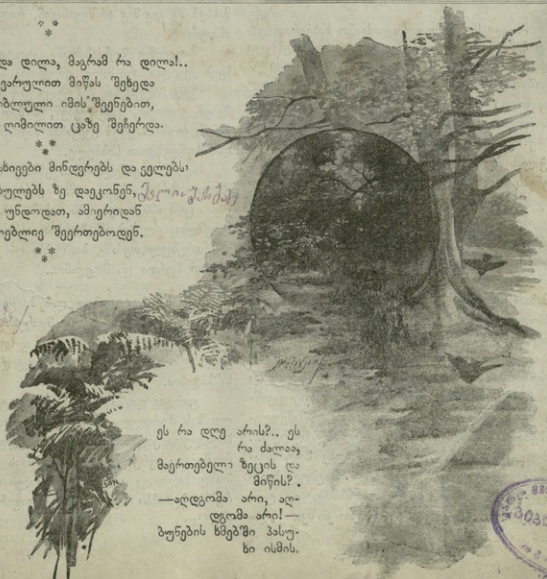 და დილა, მაგრამ რა დილა!..
მიწას შეხედა
იმის შვენებით,
ღიმილით ცაზე შეჩერდა.
მინდერებს და ველებს
ზე დაეკონენ,
უნდოდათ, ამიერიდან
შეერთებოდენ.
ეს რა დღე არის?.. ეს
რა ძალაა,
მაერთებელი ზეცის და
მიწის?.
—აღდგომა არი, აღ-
დგომა არი!—
ბუნების ხმებში პასუ-
ხი ისმის.